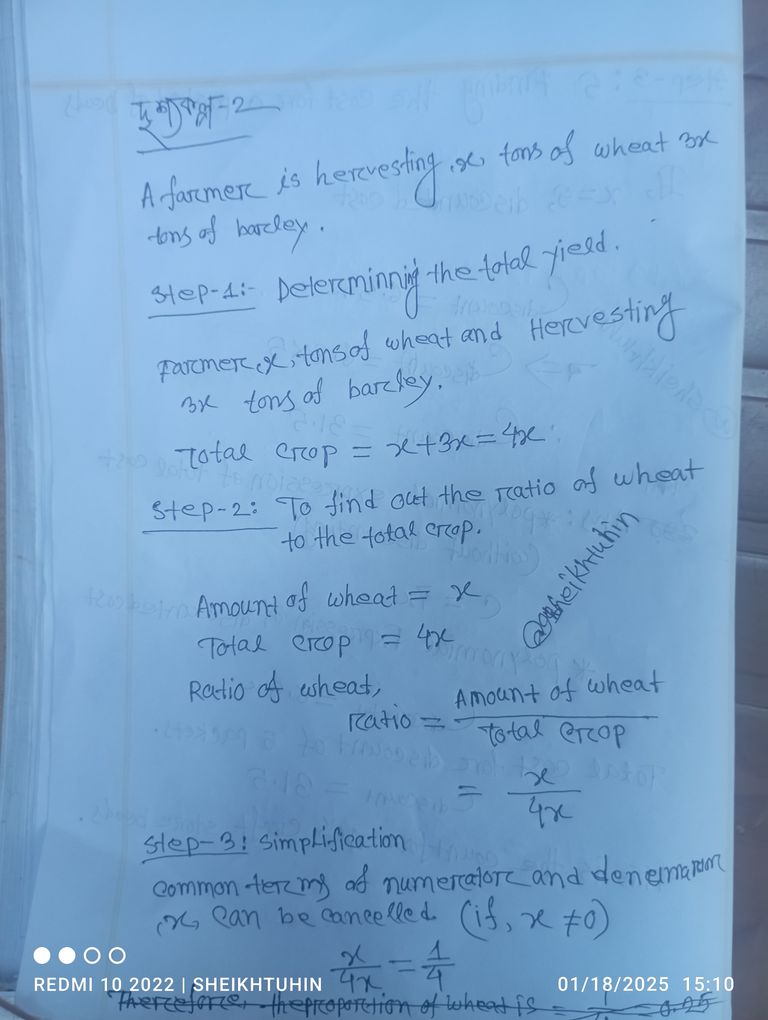 দৃশ্যকল্প-2
A farmer is hervesting, x, tons of wheat 3x
tons of barley.
Step-1:- Determinnig the total yield.
Farmer, x, tons of wheat and Hervesting
3x tons of barley.
Total crop = x+3x = 4x
Step-2: To find out the ratio of wheat
to the total crop.
Amount of wheat = x
Total crop = 4x
Ratio of wheat,
Ratio = Amount of wheat
Total crop
= x
4x
@sheikhtuhin
Step-3: Simplification
Common terms of numerator and
,x, can be cancelled (if, x ≠0)
x/4x = 1/4
Therefore, the proportion of wheat is = 0.25
REDMI 10 2022 | SHEIKHTUHIN
01/18/2025 15:10